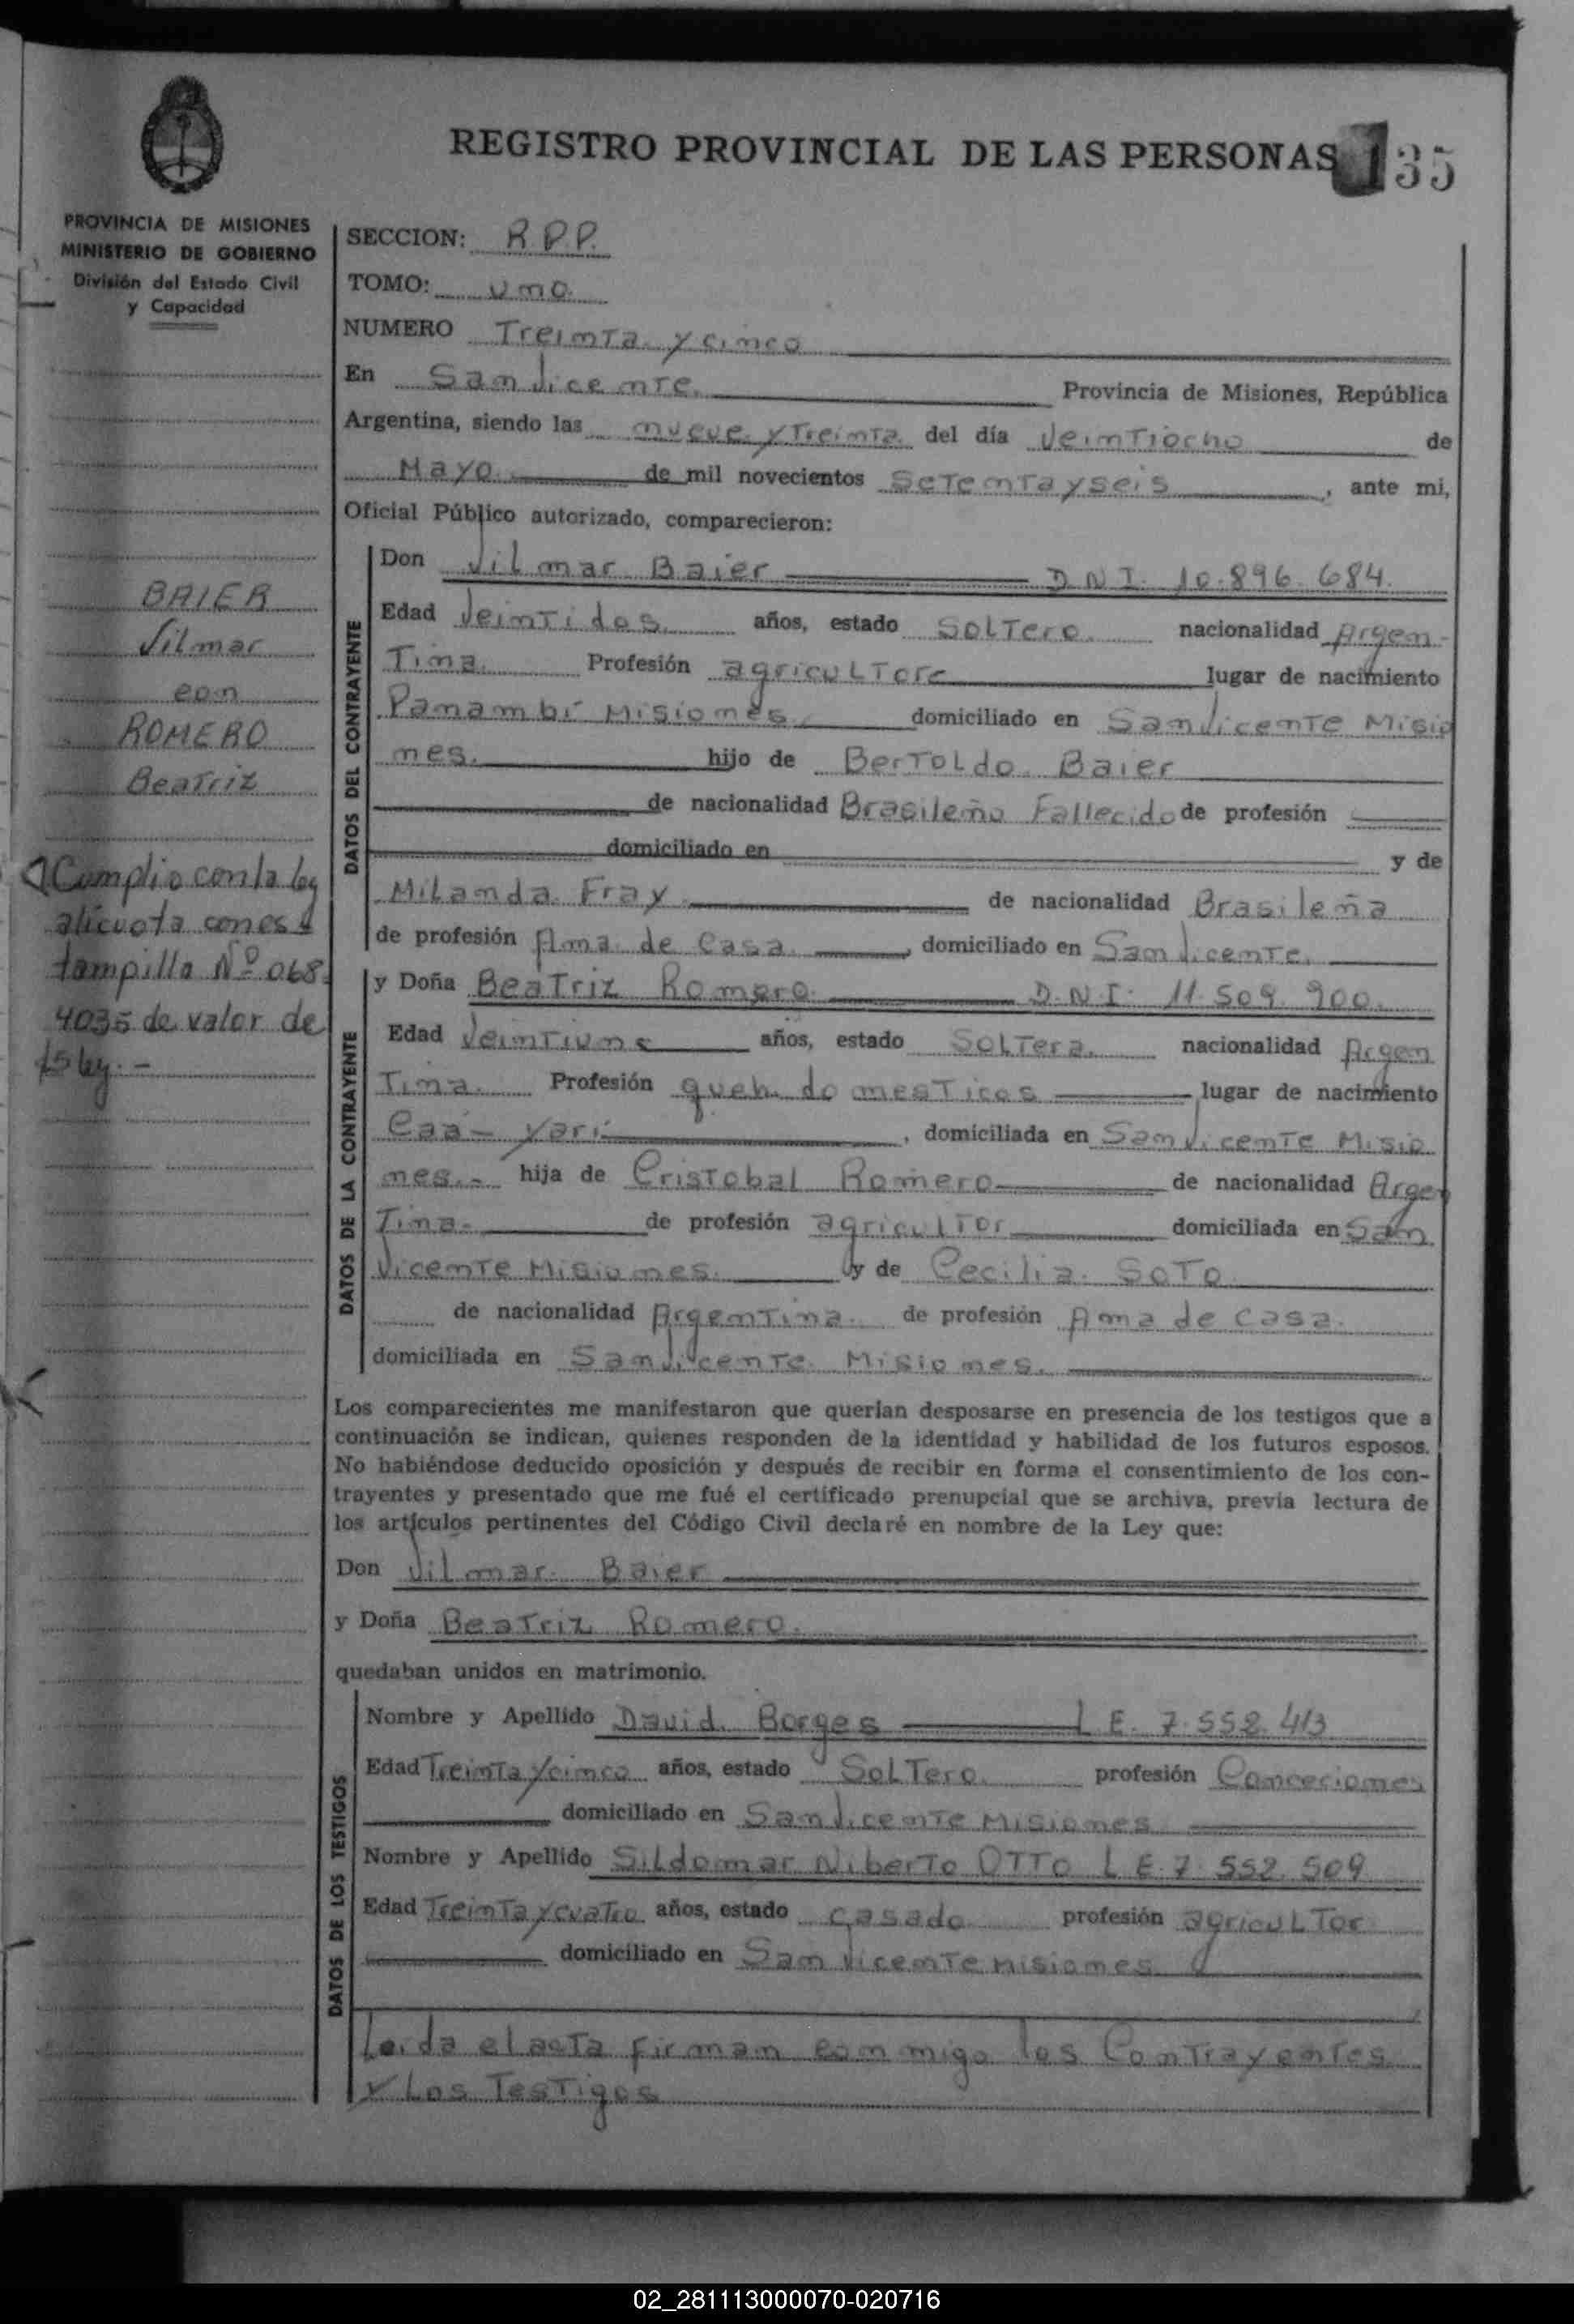 REGISTRO PROVINCIAL DE LAS PERSONAS 135
PROVINCIA DE MISIONES
MINISTERIO DE GOBIERNO
División del Estado Civil
y Capacidad
BAIER
Vilmar
con
ROMERO
Beatriz
Cumplio con la ley
alicuota con es
tampilla Nº 068
4035 de valor de
15 ley.-
SECCION: R.P.P.
TOMO: uno.
NUMERO Treinta y cinco
En San Vicente. Provincia de Misiones, República
Argentina, siendo las nueve y Treinta del día Veintiocho de
Mayo. de mil novecientos Setenta y seis, ante mi,
Oficial Público autorizado, comparecieron:
DATOS DEL CONTRAYENTE
Don Vilmar Baier D.N.I. 10.896.684.
Edad Veintidos. años, estado Soltero. nacionalidad Argen-
Tina. Profesión agricultore lugar de nacimiento
Panambí Misiones. domiciliado en San Vicente Misio
nes. hijo de Bertoldo Baier
de nacionalidad Brasileño Fallecido de profesión
domiciliado en y de
Milanda Fray de nacionalidad Brasileña
de profesión Ama de Casa., domiciliado en San Vicente.
DATOS DE LA CONTRAYENTE
y Doña Beatriz Romero. D.N.I. 11.509.900.
Edad Veintiuno años, estado Soltera. nacionalidad Argen
Tina. Profesión queh. domesticos lugar de nacimiento
Caá-Yarí, domiciliada en San Vicente Misio
nes.- hija de Cristobal Romero de nacionalidad Argen
Tina. de profesión agricultor domiciliada en San
Vicente Misiones. y de Cecilia Soto
de nacionalidad Argentina. de profesión Ama de casa.
domiciliada en San Vicente Misiones.
Los comparecientes me manifestaron que querían desposarse en presencia de los testigos que a
continuación se indican, quienes responden de la identidad y habilidad de los futuros esposos.
No habiéndose deducido oposición y después de recibir en forma el consentimiento de los con-
trayentes y presentado que me fué el certificado prenupcial que se archiva, previa lectura de
los artículos pertinentes del Código Civil declaré en nombre de la Ley que:
Don Vilmar Baier
y Doña Beatriz Romero.
quedaban unidos en matrimonio.
DATOS DE LOS TESTIGOS
Nombre y Apellido David Borges L.E. 7.552.413
Edad Treinta y cinco años, estado Soltero. profesión Concesiones
domiciliado en San Vicente Misiones
Nombre y Apellido Sildomar Niberto OTTO L.E. 7.552.509
Edad Treinta y cuatro años, estado casado profesión agricultor
domiciliado en San Vicente Misiones
Leida el acta firman conmigo los Contrayentes
y Los Testigos
02_281113000070-020716